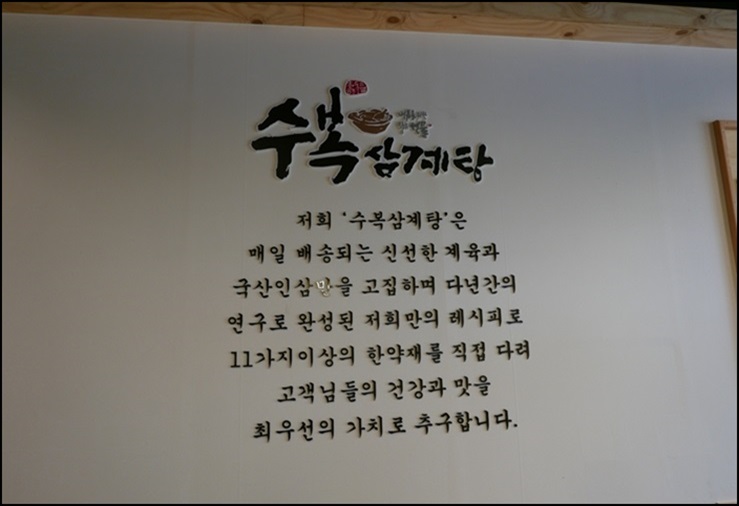 수복삼계탕
저희 '수복삼계탕'은
매일 배송되는 신선한 계육과
국산인삼만을 고집하며 다년간의
연구로 완성된 저희만의 레시피로
11가지이상의 한약재를 직접 다려
고객님들의 건강과 맛을
최우선의 가치로 추구합니다.